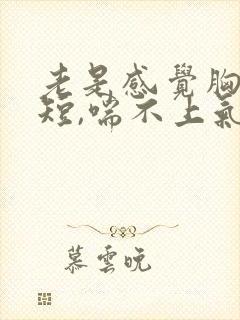 老是感覺胸
短,喘不上氣
慕雲晚